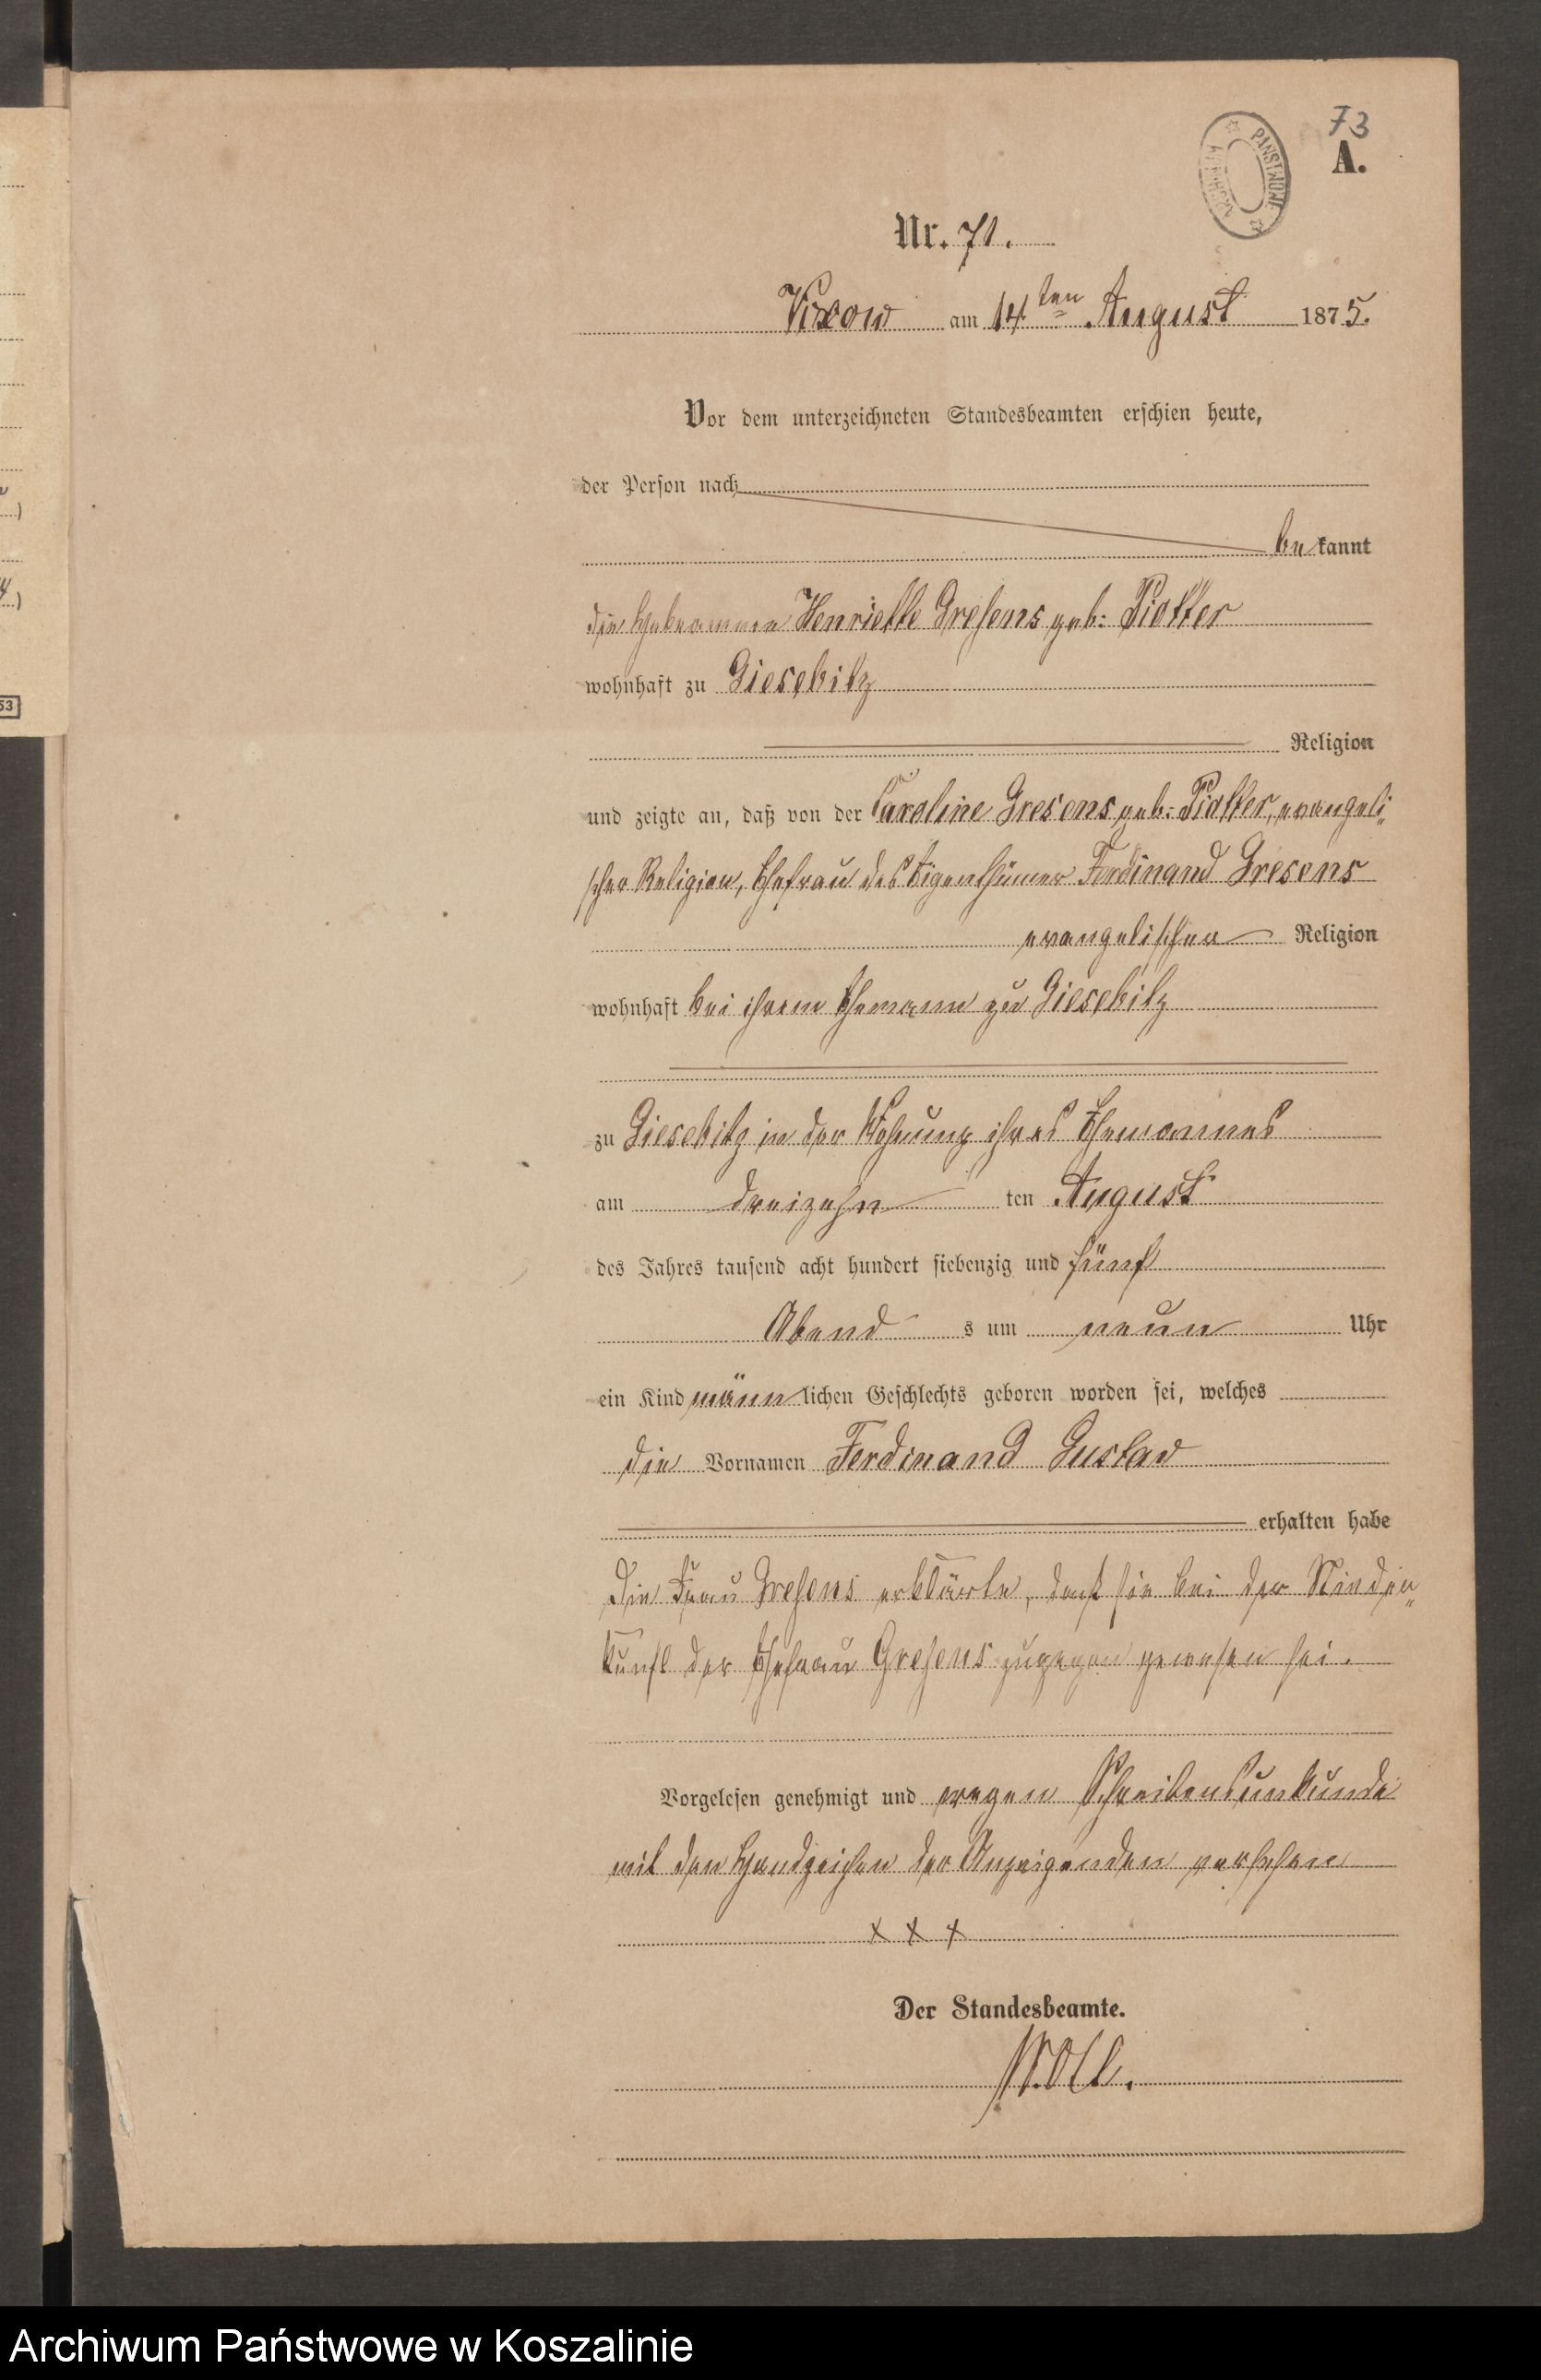 73
A.
PAŃSTWOWE
ARCHIWUM
Nr. 71.
Vixow am 14ten August 1875.
Vor dem unterzeichneten Standesbeamten erschien heute,
der Person nach
bekannt
die Hebeamme Henriette Gresens geb: Piotter
wohnhaft zu Giesebitz
Religion
und zeigte an, daß von der Caroline Gresens geb: Piotter, evangeli„
scher Religion, Ehefrau des Eigenthümer Ferdinand Gresens
evangelischer Religion
wohnhaft bei ihrem Ehemann zu Giesebitz
zu Giesebitz in der Wohnung ihres Ehemannes
am dreizehn ten August
des Jahres tausend acht hundert siebenzig und fünf
Abend s um neun Uhr
ein Kind männlichen Geschlechts geboren worden sei, welches
die Vornamen Ferdinand Gustav
erhalten habe
Die Frau Gresens erklärte, daß sie bei der Nieder„
kunft der Ehefrau Gresens zugegen gewesen sei.
Vorgelesen genehmigt und wegen Schreibensunkunde
mit den Handzeichen der Anzeigenden versehen
x x x
Der Standesbeamte.
53
Archiwum Państwowe w Koszalinie